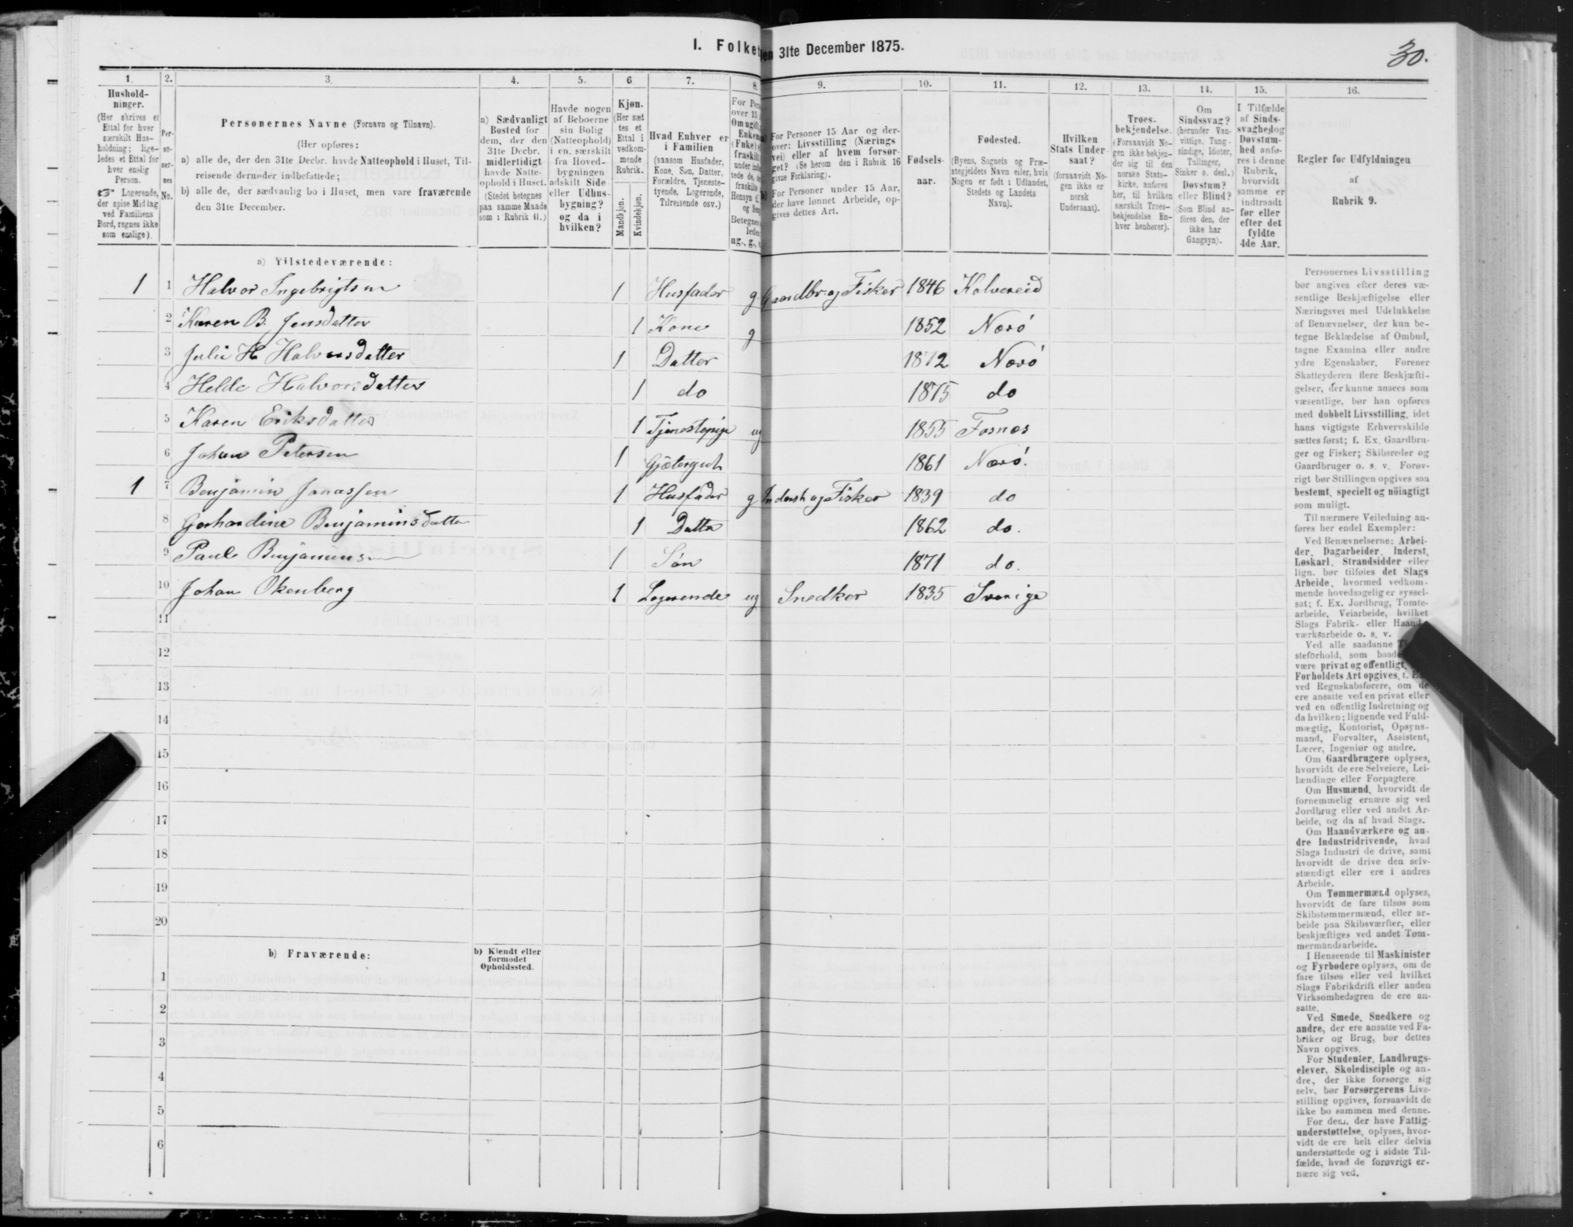 I. Folke
en 31te December 1875.
30.
1.
2.
3.
4.
5.
6
7.
8
9.
10.
11.
12.
13.
14.
15.
16.
Hushold-
ninger.
(Her skrives et
Ettal for hver
særskilt Hus-
holdning; lige-
ledes et Ettal for
hver enslig
Person.
☞ Logerende,
der spise Middag
ved Familiens
Bord, regnes ikke
som enslige).
Per-
so-
ner-
nes
No.
Personernes Navne (Fornavn og Tilnavn).
(Her opføres:
a) alle de, der den 31te Decbr. havde Natteophold i Huset, Til-
reisende derunder indbefattede;
b) alle de, der sædvanlig bo i Huset, men vare fraværende
den 31te December.
a) Sædvanligt
Bosted for
dem, der den
31te Decbr.
midlertidigt
havde Natte-
ophold i Huset.
(Stedet betegnes
paa samme Maade
som i Rubrik 11.)
Havde nogen
af Beboerne
sin Bolig
(Natteophold)
i en, særskilt
fra Hoved-
bygningen
adskilt Side
eller Udhus-
bygning?
og da i
hvilken?
Kjøn.
(Her sæt
tes et
Ettal i
vedkom-
mende
Rubrik.
Mandkjøn.
Kvindekjøn.
Hvad Enhver er
i Familien
(saasom Husfader,
Kone, Søn, Datter,
Forældre, Tjeneste-
tyende, Logerende,
Tilreisende osv.)
For Personer 15 Aar og der-
over: Livsstilling (Nærings
vei) eller af hvem forsør-
get? (Se herom den i Rubrik 16
givne Forklaring).
For Personer under 15 Aar,
der have lønnet Arbeide, op-
gives dettes Art.
Fødsels-
aar.
Fødested.
(Byens, Sognets og Præ-
stegjeldets Navn eller, hvis
Nogen er født i Udlandet,
Stedets og Landets
Navn).
Hvilken
Stats Under
saat?
(forsaavidt No-
gen ikke er
norsk
Undersaat).
Troes-
bekjendelse.
(Forsaavidt No-
gen ikke bekjen-
der sig til den
norske Stats-
kirke, anføres
her, til hvilken
særskilt Troes-
bekjendelse En-
hver henhører).
Om
Sindssvag?
(herunder Van-
vittige, Tung-
sindige, Idioter,
Tullinger,
Sinker o. desl.)
Døvstum?
eller Blind?
(Som Blind an-
føres den, der
ikke har
Gangsyn).
I Tilfælde
af Sinds-
svaghed og
Døvstum-
hed anfø-
res i denne
Rubrik,
hvorvidt
samme er
indtraadt
før eller
efter det
fyldte
4de Aar.
Regler for Udfyldningen
af
Rubrik 9.
a) Tilstedeværende:
1 1 Halvor Ingebrigtsen 1 Husfader g Gaardbr og Fisker 1846 Kolvereid
2 Karen B. Jensdatter 1 Kone g 1852 Nærö
3 Julie H Halvorsdatter 1 Datter 1872 Nærö
4 Helde Halvorsdatter 1 do 1875 do
5 Karen Eriksdatter 1 Tjenestepige ug 1855 Fosnes
6 Johan Petersen 1 Gjætergut 1861 Nærö.
1 7 Benjamin Jonassen 1 Husfader g Inderst og Fisker 1839 do
8 Gerhardine Benjaminsdatter 1 Datter 1862 do.
9 Paul Benjaminsen 1 Søn 1871 do.
10 Johan Okenberg 1 Logerende ug Snedker 1835 Sverige
11
12
13
14
15
16
17
18
19
20
b) Fraværende:
b) Kjendt eller
formodet
Opholdssted.
1
2
3
4
5
6
Personernes Livsstilling
bør angives efter deres væ-
sentlige Beskjæftigelse eller
Næringsvei med Udelukkelse
af Benævnelser, der kun be-
tegne Beklædelse af Ombud,
tagne Examina eller andre
ydre Egenskaber. Forener
Skatteyderen flere Beskjæfti-
gelser, der kunne ansees som
væsentlige, bør han opføres
med dobbelt Livsstilling, idet
hans vigtigste Erhvervskilde
sættes først; f. Ex. Gaardbru-
ger og Fisker; Skibsreder og
Gaardbruger o. s. v. Forøv-
rigt bør Stillingen opgives saa
bestemt, specielt og nöiagtigt
som muligt.
Til nærmere Veiledning an-
føres her endel Exempler:
Ved Benævnelserne: Arbei-
der, Dagarbeider, Inderst,
Løskarl, Strandsidder eller
lign. bør tilføies det Slags
Arbeide, hvormed vedkom-
mende hovedsagelig er syssel-
sat; f. Ex. Jordbrug, Tomte-
arbeide, Veiarbeide, hvilket
Slags Fabrik- eller Haand-
værksarbeide o. s. v.
Ved alle saadanne
steforhold, som baade
være privat og offentligt,
Forholdets Art opgives, f. Ex.
ved Regnskabsførere, om de
ere ansatte ved en privat eller
ved en offentlig Indretning og
da hvilken; lignende ved Fuld-
mægtig, Kontorist, Opsyns-
mand, Forvalter, Assistent,
Lærer, Ingeniør og andre.
Om Gaardbrugere oplyses,
hvorvidt de ere Selveiere, Lei-
lændinge eller Forpagtere.
Om Husmænd, hvorvidt de
fornemmelig ernære sig ved
Jordbrug eller ved andet Ar-
beide, og da af hvad Slags.
Om Haandværkere og an-
dre Industridrivende, hvad
Slags Industri de drive, samt
hvorvidt de drive den selv-
stændigt eller ere i andres
Arbeide.
Om Tømmermænd oplyses,
hvorvidt de fare tilsøs som
Skibstømmermænd, eller ar-
beide paa Skibsværfter, eller
beskjæftiges ved andet Tøm-
mermandsarbeide.
I Henseende til Maskinister
og Fyrbødere oplyses, om de
fare tilsøs eller ved hvilket
Slags Fabrikdrift eller anden
Virksomhedsgren de ere an-
satte.
Ved Smede, Snedkere og
andre, der ere ansatte ved Fa-
briker og Brug, bør dettes
Navn opgives.
For Studenter, Landbrugs-
elever, Skoledisciple og an-
dre, der ikke forsørge sig
selv, bør Forsørgerens Livs-
stilling opgives, forsaavidt de
ikke bo sammen med denne.
For dem, der have Fattig-
understøttelse, oplyses, hvor-
vidt de ere helt eller delvis
understøttede og i sidste Til-
fælde, hvad de forøvrigt er-
nære sig ved.